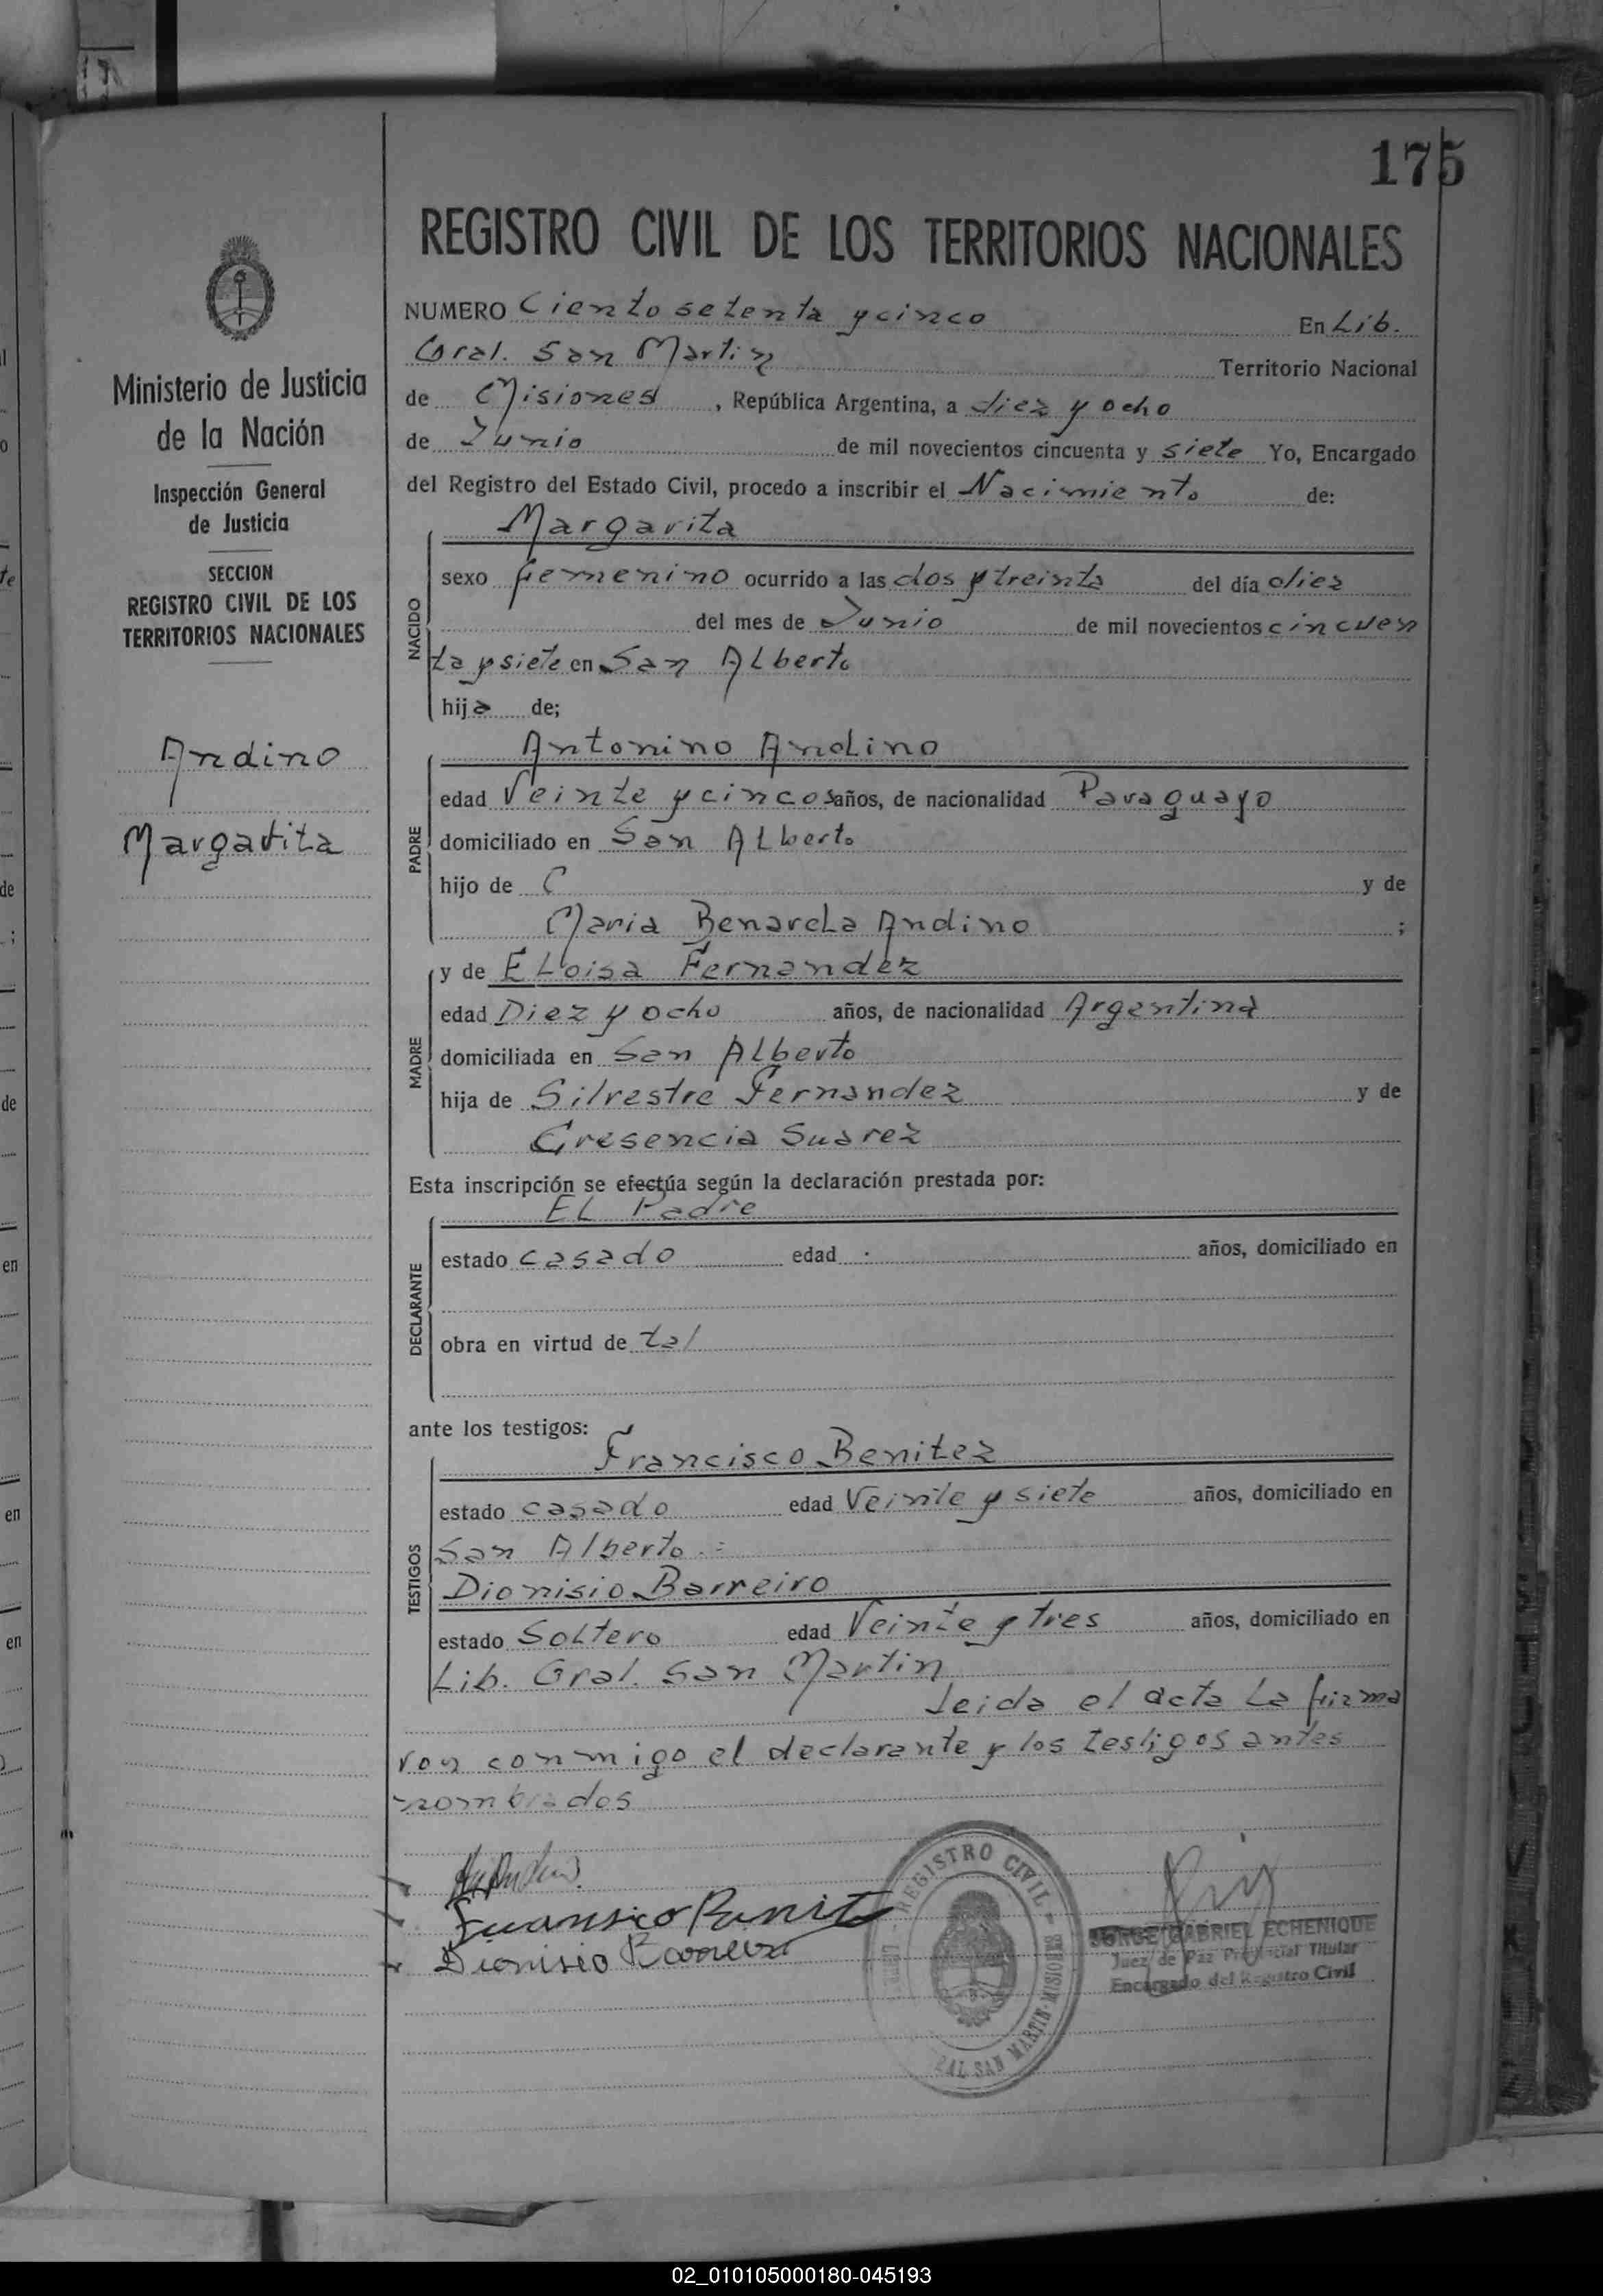 175
REGISTRO CIVIL DE LOS TERRITORIOS NACIONALES
Ministerio de Justicia
de la Nación
Inspección General
de Justicia
SECCION
REGISTRO CIVIL DE LOS
TERRITORIOS NACIONALES
Andino
Margarita
NUMERO Ciento setenta y cinco En Lib.
Gral. San Martin Territorio Nacional
de Misiones, República Argentina, a diez y ocho
de Junio de mil novecientos cincuenta y siete Yo, Encargado
del Registro del Estado Civil, procedo a inscribir el Nacimiento de:
NACIDO
Margarita
sexo femenino ocurrido a las dos y treinta del día diez
del mes de Junio de mil novecientos cincuen
ta y siete en San Alberto
hija de;
PADRE
Antonino Andino
edad Veinte y cinco años, de nacionalidad Paraguayo
domiciliado en San Alberto
hijo de y de
Maria Benarda Andino ;
MADRE
y de Eloisa Fernandez
edad Diez y ocho años, de nacionalidad Argentina
domiciliada en San Alberto
hija de Silvestre Fernandez y de
Cresencia Suarez
Esta inscripción se efectúa según la declaración prestada por:
DECLARANTE
El Padre
estado casado edad años, domiciliado en
obra en virtud de tal
ante los testigos:
TESTIGOS
Francisco Benitez
estado casado edad Veinte y siete años, domiciliado en
San Alberto.=
Dionisio Barreiro
estado Soltero edad Veinte y tres años, domiciliado en
Lib. Gral. San Martin
leida el acta la firma
ron conmigo el declarante y los testigos antes
nombrados
Dionisio Barreiro
REGISTRO CIVIL
GRAL SAN MARTIN-MISIONES
JORGE GABRIEL ECHENIQUE
Juez de Paz Provincial Titular
Encargado del Registro Civil
te
de
de
en
en
en
02_010105000180-045193